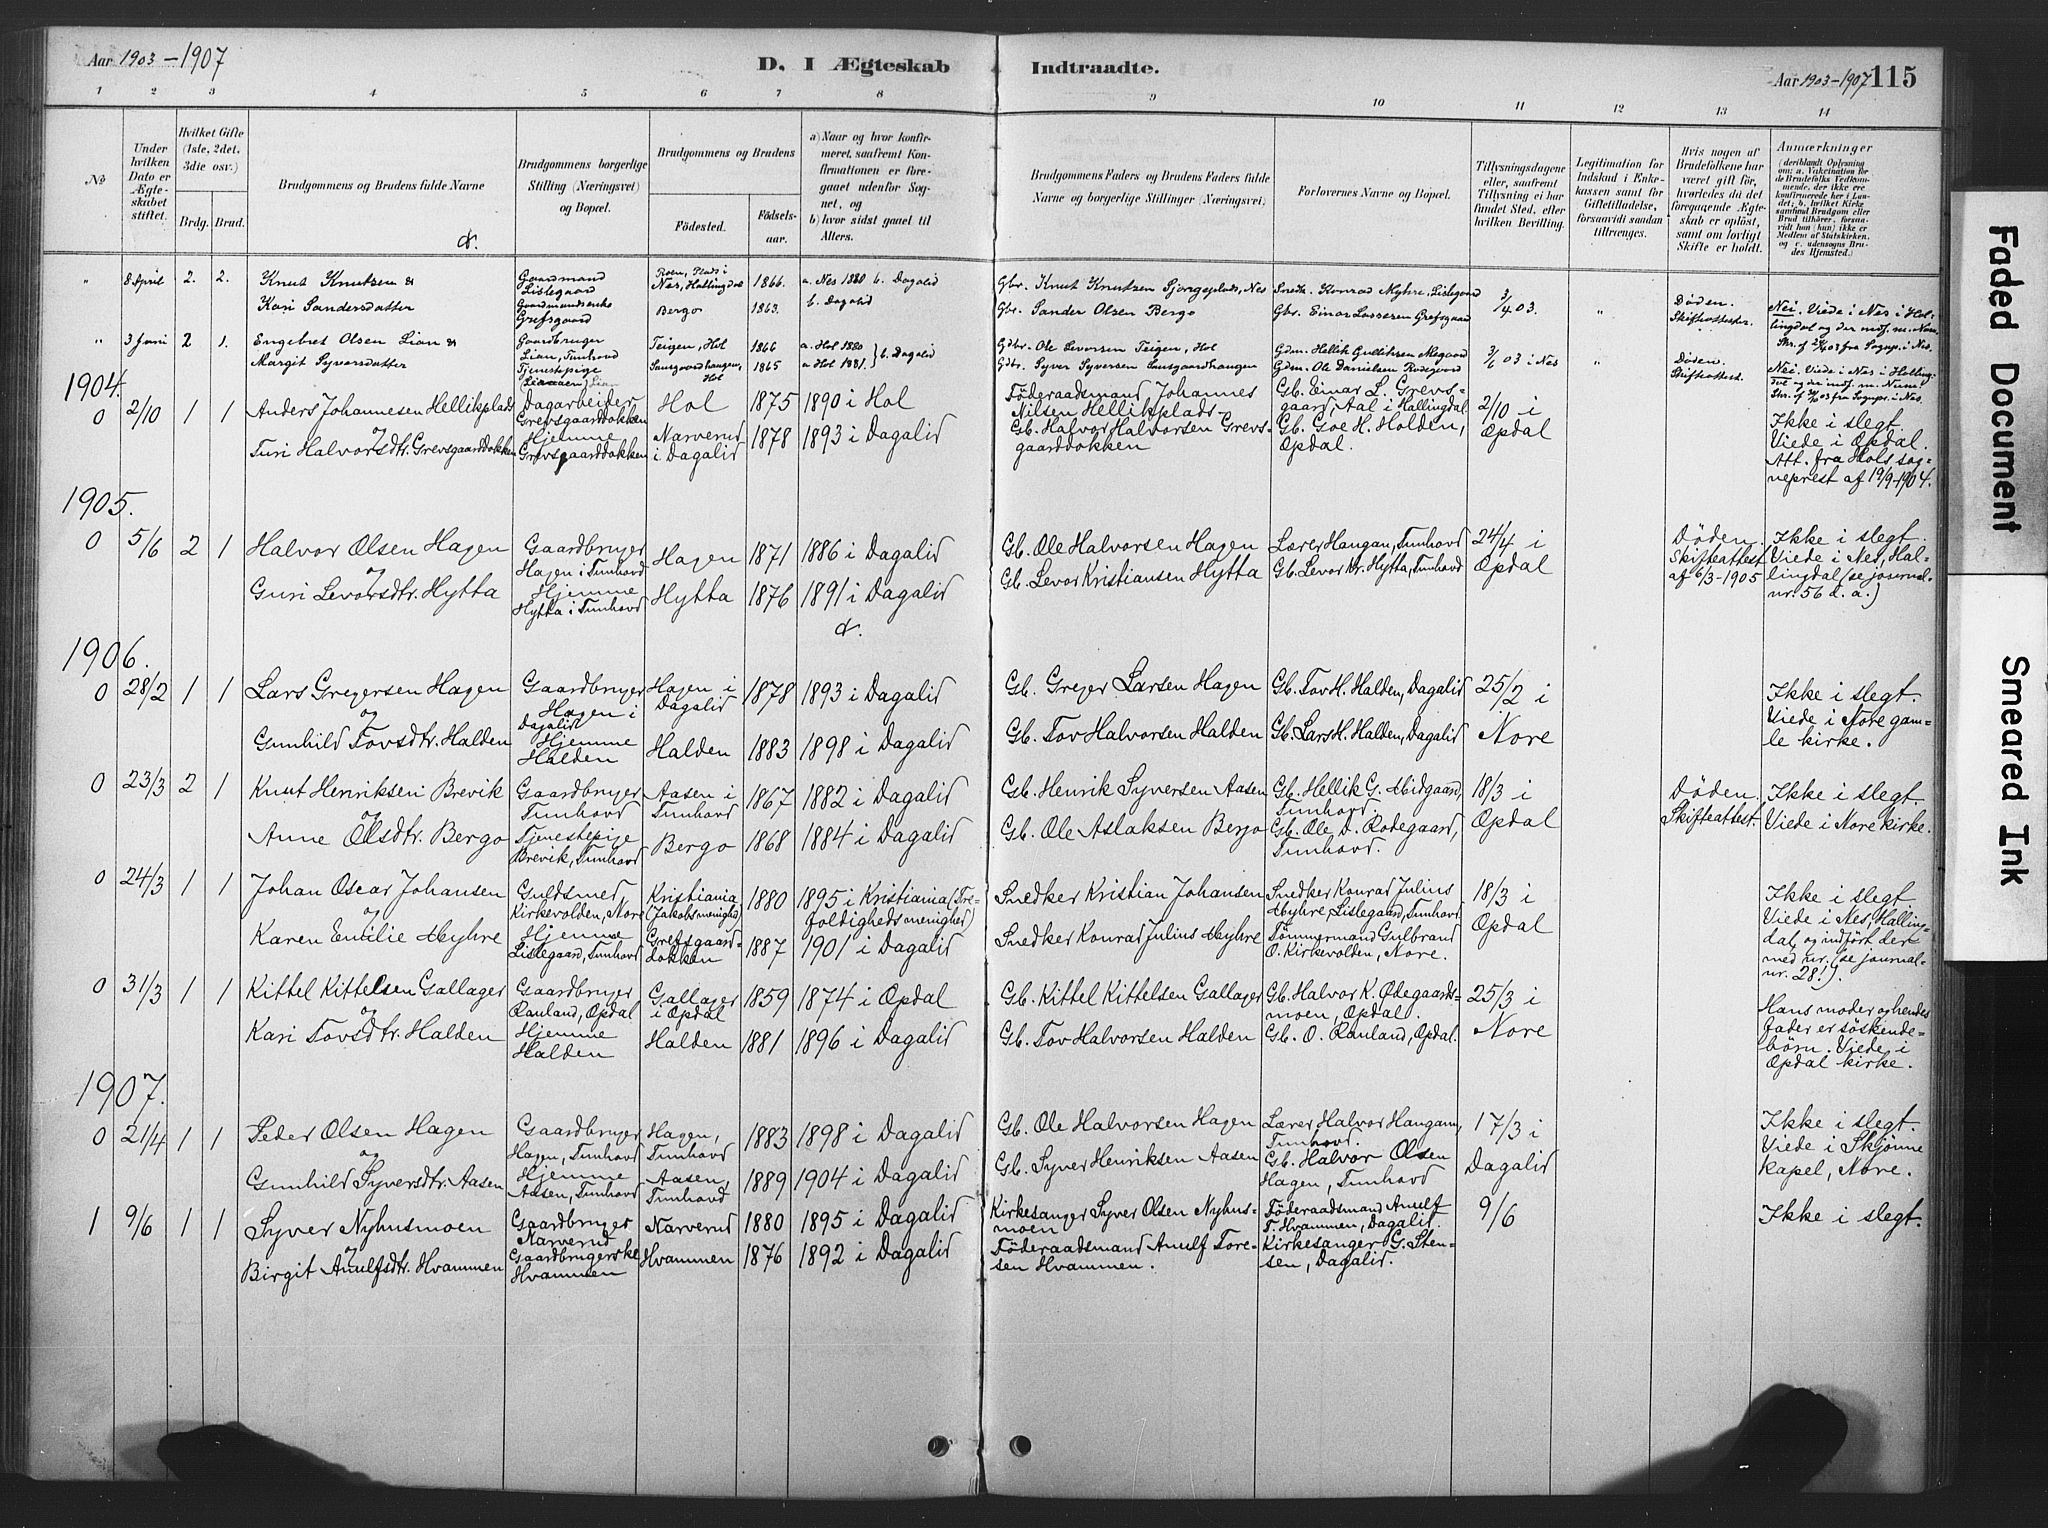 Aar 1903 – 1907
D. I Ægteskab Indtraadte.
Aar 1903 – 1907 115
1 2 3 4 5 6 7 8 9 10 11 12 13 14
No
Under hvilken Dato er Ægteskabet stiftet.
Hvilket Gifte (1ste, 2det, 3die osv.)
Brdg. Brud.
Brudgommens og Brudens fulde Navne
Brudgommens borgerlige Stilling (Næringsvei) og Bopæl.
Brudgommens og Brudens
Fødested.
Fødselsaar.
a) Naar og hvor konfirmeret, saafremt Konfirmationen er foregaaet udenfor Sognet, og
b) hvor sidst gaaet til Alters.
Brudgommens Faders og Brudens Faders fulde Navne og borgerlige Stillinger (Næringsvei)
Forlovernes Navne og Bopæl.
Tillysningsdagene eller, saafremt Tillysning ei har fundet Sted, efter hvilken Bevilling.
Legitimation for Indskud i Enkekassen samt for Giftetilladelse, forsaavidt saadan tiltrænges.
Hvis nogen af Brudefolkene har været gift før, hvorledes da det foregaaende Ægteskab er opløst, samt om lovligt Skifte er holdt.
Anmærkninger
(deriblandt Oplysning om: a. Vaksination for de Brudefolks Vedkommende, der ikke ere konfirmerede her i Landet; b. hvilket Kirkesamfund Brudgom eller Brud tilhører, forsaavidt han (hun) ikke er Medlem af Statskirken, og c. udensogns Brudes Hjemsted.)
" 8 April 2. 2. Knut Knutsen & Gaardmand Lislegaard Roen, Plads i Nes, Hallingdal 1866. a. Nes 1880 b. Dagalid Gbr. Knut Knutsen Sjongeplads, Nes Snedk. Konrad Myhre, Lislegaard 3/4 03. " Døden. Skifteattester.
Kari Sandersdatter Gaardmandsenke Grefsgaard Bergo 1863. b. Dagalid Gbr. Sander Olsen Bergo Gbr. Einar Larssen Grefsgaard
Nei. Viede i Nes i Hallingdal og der indf. m. Num.
" 3 Juni 2 1. Engebret Olsen Lian & Gaardbruger Lian, Tunhovd Teigen, Hol 1866 a. Hol 1880 b. Dagalid Gdbr. Ole Leversen Teigen, Hol Gdm. Hellik Gulliksen Megaard 3/6 03 i Nes " Døden. Skifteattest.
Margit Syversdatter Tjenestepige Lian Sansgaardhaugen, Hol 1865 a Hol 1881. Gdbr. Syver Syversen Sansgaardhaugen Gdm. Ole Danielsen Rodegard
Nei. Viede i Nes i Hallingdal og der indf. m. Num.
1904.
0 2/10 1 1 Anders Johannesen Hellikplads Dagarbeider Grevsgaarddokken Hol 1875 1890 i Hol Föderaadsmand Johannes Nilsen Hellikplads Gb. Einar L. Grevsgaard, Aal i Hallingdal 2/10 i Opdal Ikke i slegt. Viede i Opdal.
og
Turi Halvorsdtr. Grevsgaarddokken Hjemme Grevsgaarddokken Narverud i Dagalid 1878 1893 i Dagalid Gb. Halvor Halvorsen Grevsgaarddokken Gb. Goe H. Holden, Opdal.
Att. fra Hols sogneprest af 19/9-1904.
1905.
0 5/6 2 1 Halvor Olsen Hagen Gaardbruger Hagen i Tunhovd Hagen 1871 1886 i Dagalid Gb. Ole Halvorsen Hagen Lærer Haugan, Tunhovd 24/4 i Opdal Døden. Skifteattest af 6/3-1905 Ikke i slegt. Viede i Nes, Hallingdal (se journalnr. 56 d. a.)
og
Guri Levorsdtr. Hytta Hjemme Hytta i Tunhovd Hytta 1876 1891 i Dagalid Gb. Levor Kristiansen Hytta Gb. Levor Kr. Hytta, Tunhovd
1906.
0 28/2 1 1 Lars Gregersen Hagen Gaardbruger Hagen i Dagalid Hagen i Dagalid 1878 1893 i Dagalid Gb. Greger Larsen Hagen Gb. Tov H. Halden, Dagalid 25/2 i Nore Ikke i slegt. Viede i Nore gamle kirke.
og
Gunhild Tovsdtr. Halden Hjemme Halden Halden 1883 1898 i Dagalid Gb. Tov Halvorsen Halden Gb. Lars H. Halden, Dagalid
0 23/3 2 1 Knut Henriksen Brevik Gaardbruger Tunhovd Aasen i Tunhovd 1867 1882 i Dagalid Gb. Henrik Syversen Aasen Gb. Hellik G. Midgaard, Tunhovd. 18/3 i Opdal Døden. Skifteattest. Ikke i slegt. Viede i Nore kirke.
og
Anne Olsdtr. Bergo Tjenestepige Brevik, Tunhovd Bergo 1868 1884 i Dagalid Gb. Ole Aslaksen Bergo Gb. Ole D. Rodegaard, Tunhovd.
0 24/3 1 1 Johan Oscar Johansen Guldsmed Kirkevolden, Nore Kristiania (Jakobs menighed) 1880 1895 i Kristiania (Trefoldigheds menighed) Snedker Kristian Johansen Snedker Konrad Julius Myhre Lislegaard, Tunhovd. 18/3 i Opdal Ikke i slegt Viede i Nes, Hallingdal, og indført der med nr. (se journalnr. 281).
og
Karen Emilie Myhre Hjemme Lislegaard, Tunhovd Grefsgaarddokken 1887 1901 i Dagalid Snedker Konrad Julius Myhre Tømmermand Gulbrand O. Kirkevolden, Nore.
0 31/3 1 1 Kittel Kittelsen Gallager Gaardbruger Rauland, Opdal Gallager i Opdal 1859 1874 i Opdal Gb. Kittel Kittelsen Gallager Gb. Halvor K. Ødegaardsmoen, Opdal. 25/3 i Nore Hans moder og hendes fader er söskendebörn. Viede i Opdal kirke.
og
Kari Tovsdtr. Halden Hjemme Halden Halden 1881 1896 i Dagalid Gb. Tov Halvorsen Halden Gb. O. Rauland, Opdal.
1907.
0 21/4 1 1 Peder Olsen Hagen Gaardbruger Hagen, Tunhovd Hagen, Tunhovd 1883 1898 i Dagalid Gb. Ole Halvorsen Hagen Lærer Halvor Haugann, Tunhovd. 17/3 i Dagalid Ikke i slegt. Viede i Skjönne kapel, Nore.
og
Gunhild Syversdtr. Aasen Hjemme Aasen, Tunhovd Aasen, Tunhovd 1889 1904 i Dagalid Gb. Syver Henriksen Aasen Gb. Halvor Olsen Hagen, Tunhovd
1 9/6 1 1 Syver Nyhusmoen Gaardbruger Narverud Narverud 1880 1895 i Dagalid Kirkesanger Syver Olsen Nyhusmoen Föderaadsmand Anulf T. Hvammen, Dagalid. 9/6 Ikke i slegt.
og
Birgit Anulfsdtr. Hvammen Gaardbrugerske Hvammen Hvammen 1876 1892 i Dagalid Föderaadsmand Anulf Toresen Hvammen. Kirkesanger G. Stensen, Dagalid.
Faded Document
Smeared Ink